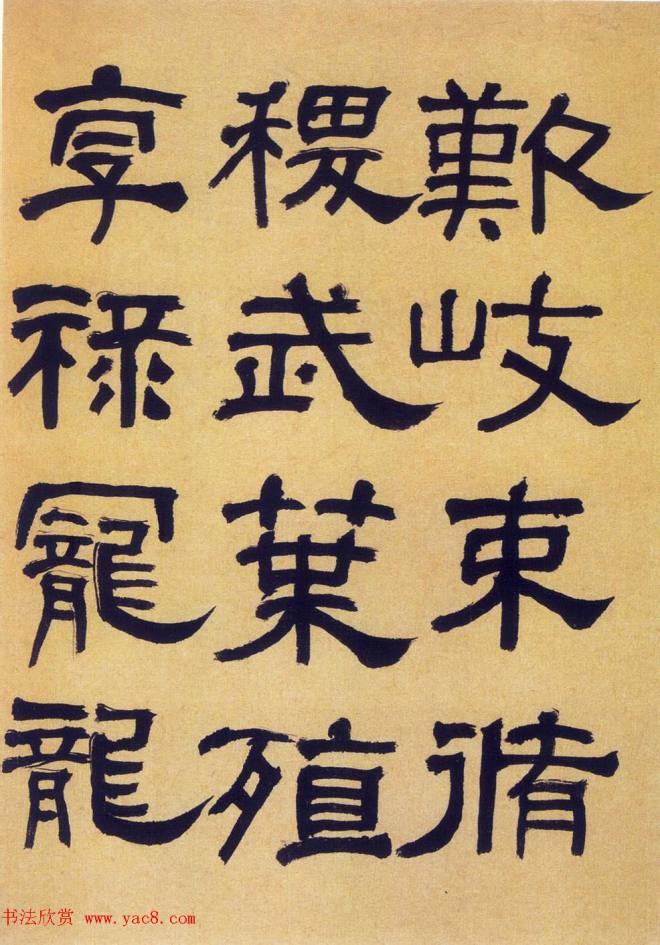 歎岐束脩
稷武葉殖
享祿寵龍
书法欣赏 www.yac8.com